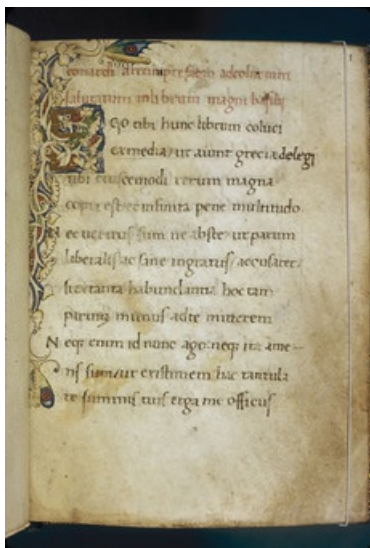 eonardi aretini prefatio ad colucium
salutatum in librum magni basilij
EGo tibi hunc librum coluci
ex media/ ut aiunt grecia delegi
ubi eiuscemodi rerum magna
copia est et infinita pene multitudo
Nec ueritus sum ne abs te ut parum
liberalis ac sine ingratus/ accusarer/
si ex tanta habundantia hoc tam
paruum munus ad te mitterem
Neq; enim id nunc ago neq; ita ame-
ns sum/ ut existimem hac tantula
re summis tuis erga me officiis
1